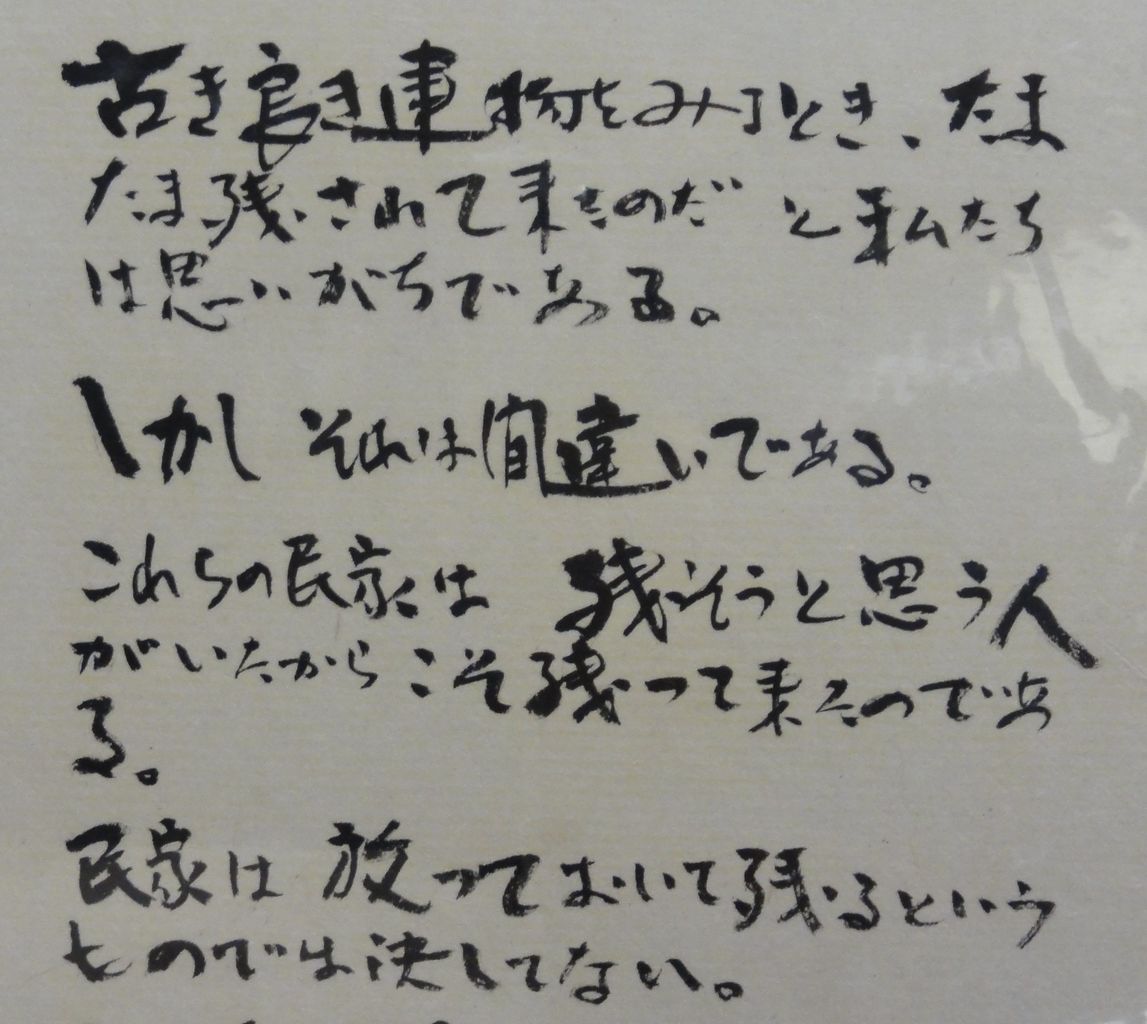 古き良き建物をみるとき、たま
たま残されて来たのだ と私たち
は思いがちである。
しかし それは間違いである。
これらの民家は 残そうと思う人
がいたからこそ残って来たのであ
る。
民家は 放っておいて残るという
ものでは決してない。